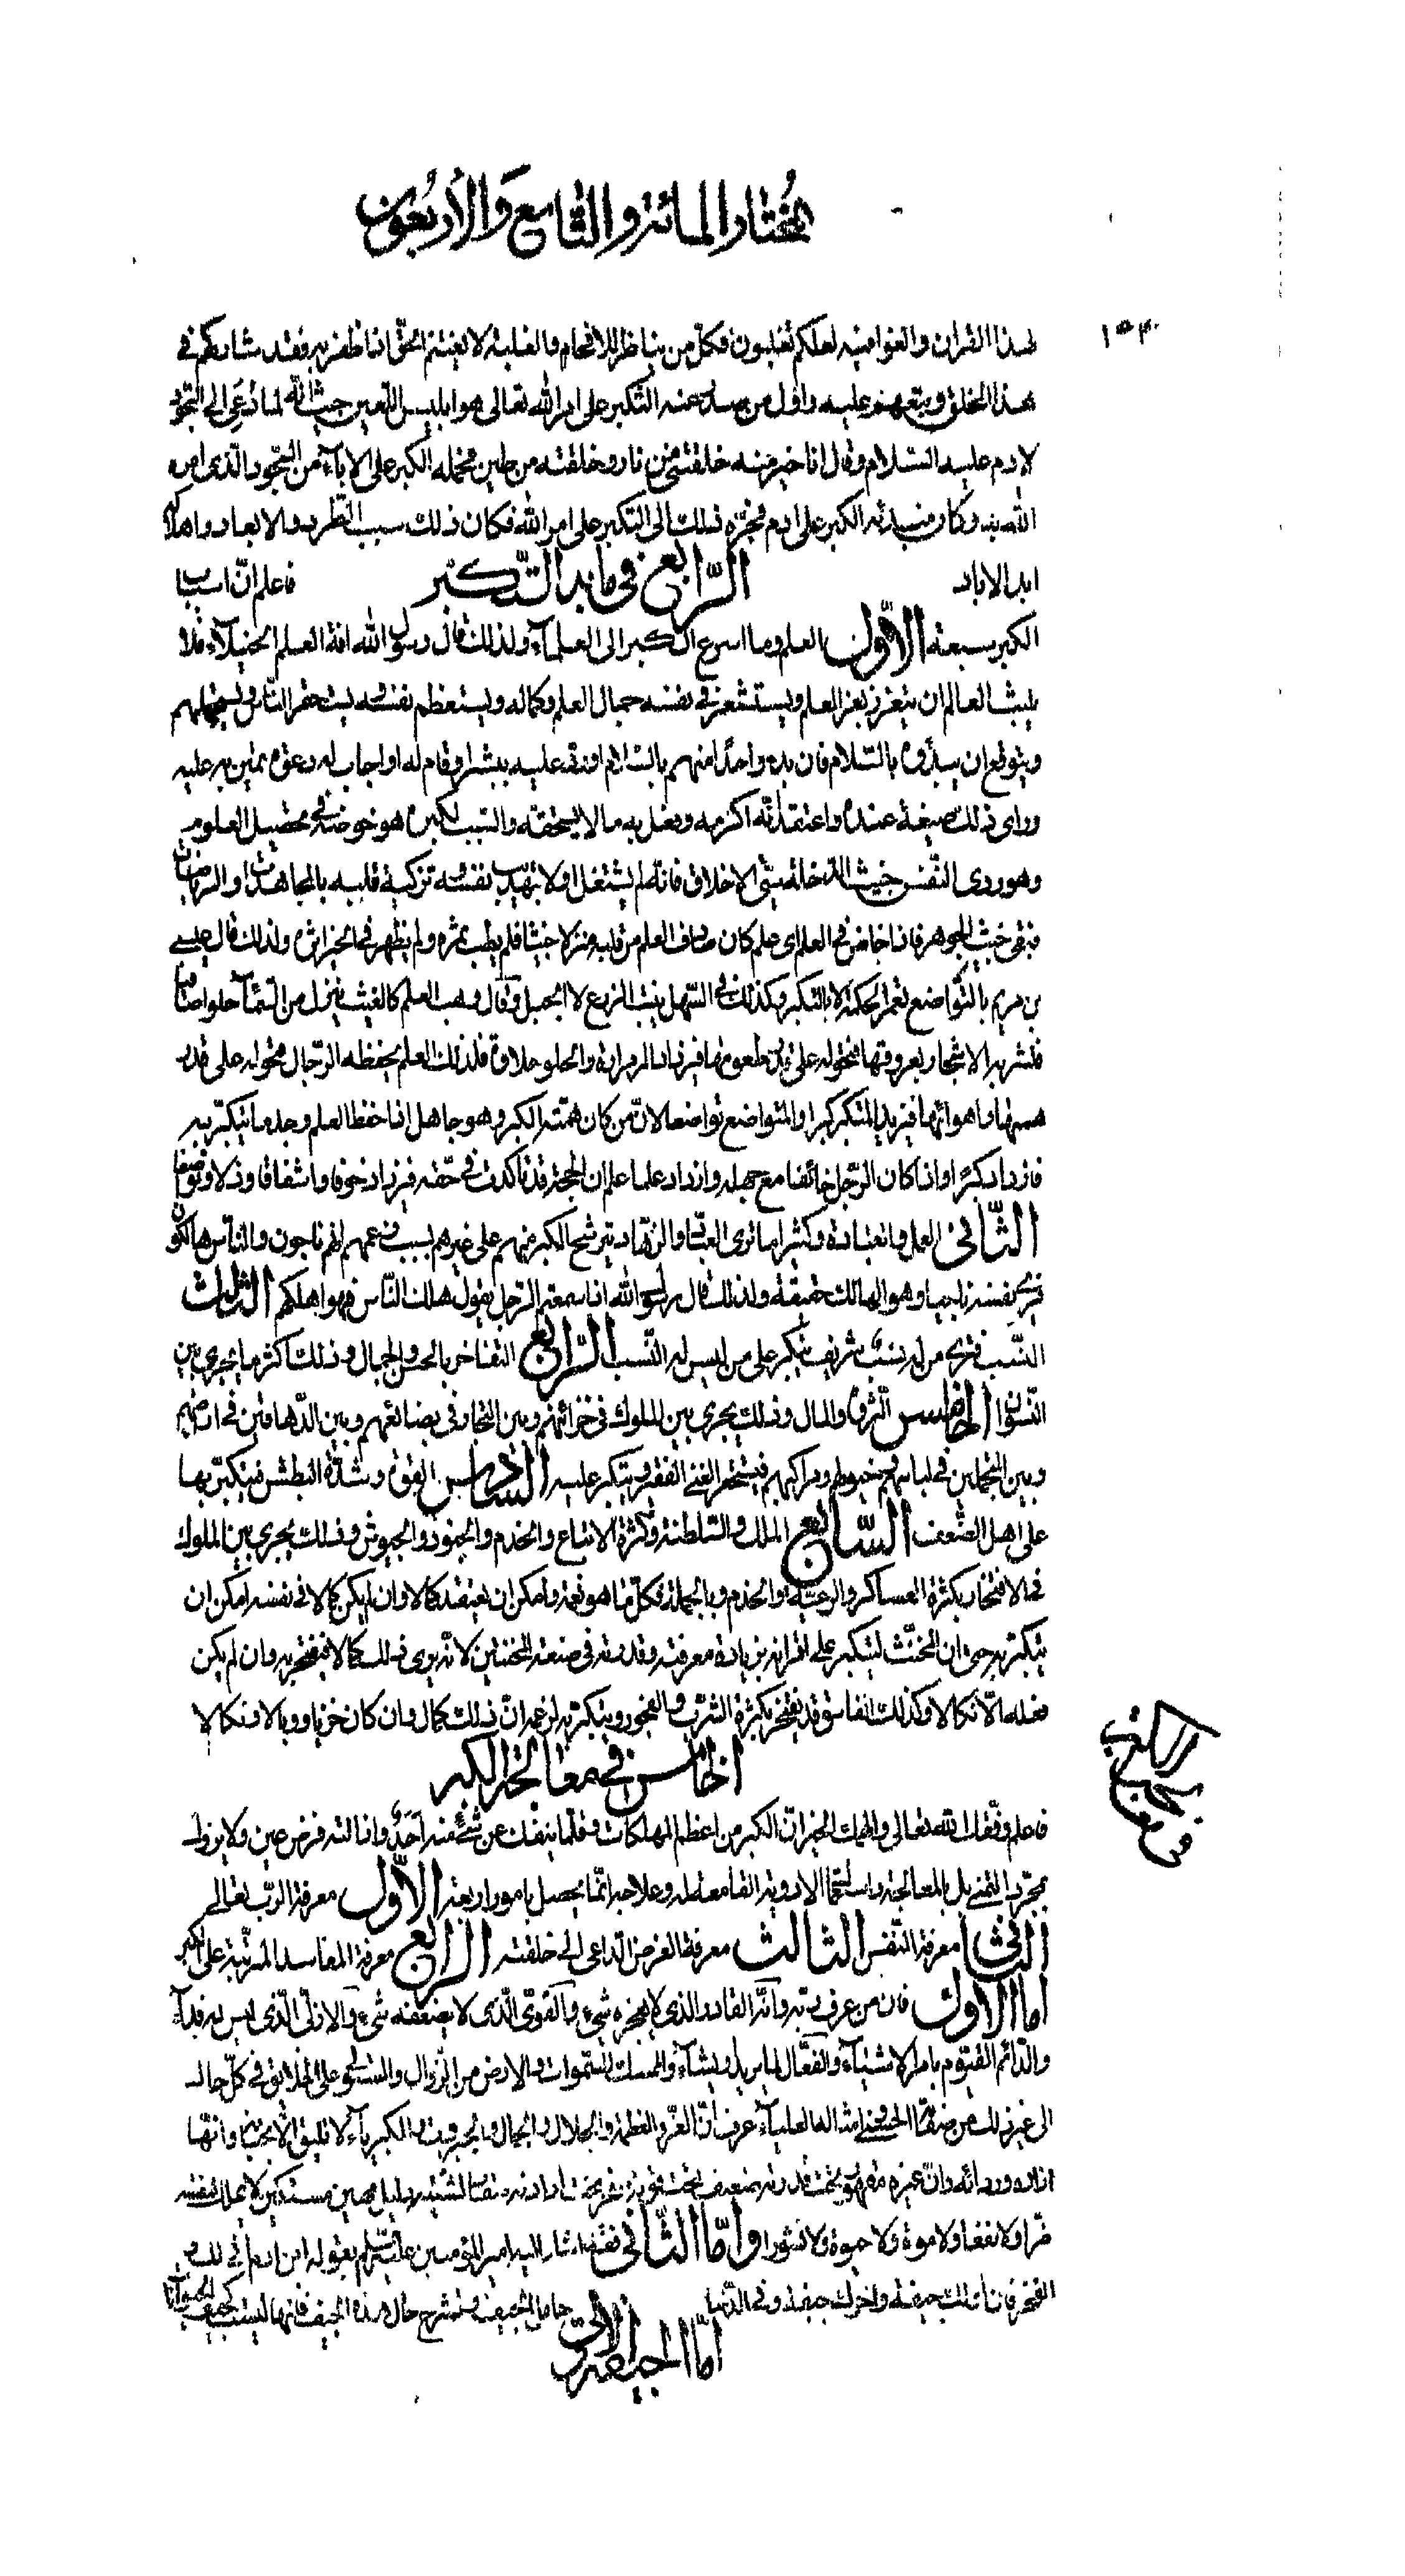 المختار المائة والتاسع والأربعون
١٥٣٠
لهذا القران والغوا فيه لعلكم تغلبون فكل من يناظر للافحام والغلبة لا ليغتنم الحق اذا ظفر به فقد شاركهم في
هذا الخلق ويتهم عليه واول من صدر عنه التكبر على امر الله تعالى هو ابليس اللعين حيث انه لما دعى الى السجود
لادم عليه السلام وقال انا خير منه خلقتني من نار وخلقته من طين فحمله الكبر على الاباء من السجود الذى امره
الله به وكان مبدئه الكبر على ادم فجره ذلك الى التكبر على امر الله فكان ذلك سبب الطرد والابعاد واهلاكه
ابد الاباد الرابع في ما به التكبر فاعلم ان اسباب
الكبر سبعة الاول العلم وما اسرع الكبر الى العلماء ولذلك قال رسول الله افة العلم الخيلاء فلا
يلبث العالم ان يتعزز بعز العلم ويستشعر في نفسه جمال العلم وكماله ويستعظم نفسه ويستحقر الناس ويستجهلهم
ويتوقع ان يبدؤه بالسلام فان بدء واحدا منهم بالسلام او رد عليه ببشر او قام له او اجاب له دعوة يمتن به عليه
وراى ذلك صنيعة عنده واعتقد انه اكرمه وفعل به ما لا يستحقه والسبب لكبره هو خوضه في تحصيل العلوم
وهو ردى النفس خبيث الدخلة سيئ الاخلاق فانه لم يشتغل اولا بتهذيب نفسه وتزكية قلبه بالمجاهدات والرياضات
فبقى خبيث الجوهر فاذا خاض في العلم اى علم كان صادف العلم من قلبه منزلا خبيثا فلم يطب ثمره ولم يظهر في الخير اثره ولذلك قال عيسى
بن مريم بالتواضع تعمر الحكمة لا بالتكبر وكذلك في السهل ينبت الزرع لا الجبل وقال وهب العلم كالغيث ينزل من السماء حلوا صافيا
فتشربه الاشجار بعروقها فتحوله على قدر طعومها فيزداد المر مرارة والحلو حلاوة فلذلك العلم يحفظه الرجال فتحوله على قدر
هممها واهوائها فيزيد المتكبر كبرا والمتواضع تواضعا لان من كان همته الكبر وهو جاهل اذا حفظ العلم وجد ما يتكبر به
فازداد كبرا واذا كان الرجل خائفا مع جهله وازداد علما علم ان الحجة قد تاكدت في حقه فيزداد خوفا واشفاقا وذلا وتواضعا
الثاني العمل والعبادة وكثيرا ما ترى العباد والزهاد يترشح الكبر منهم على غيرهم بسبب زعمهم انهم ناجون والناس هالكون
فيرى نفسه ناجيا وهو الهالك حقيقة ولذلك قال رسول الله اذا سمعتم الرجل يقول هلك الناس فهو اهلكهم الثالث
النسب فترى من له نسب شريف يتكبر على من ليس له النسب الرابع التفاخر بالحسن والجمال وذلك اكثر ما يجرى بين
النسوان الخامس الثروة والمال وذلك يجرى بين الملوك في خزائنهم وبين التجار في بضائعهم وبين الدهاقين في اراضيهم
وبين المتجملين في لباسهم وخيولهم ومراكبهم فيستحقر الغنى الفقير ويتكبر عليه السادس القوة وشدة البطش فيتكبر بها
على اهل الضعف السابع الملك والسلطنة وكثرة الاتباع والخدم والجنود والجيوش وذلك يجرى بين الملوك
في الافتخار بكثرة العساكر والرعية والخدم وبالجملة فكل ما هو نعمة وامكن ان يعتقد كمالا وان لم يكن كمالا في نفسه امكن ان
يتكبر به حتى ان المخنث ليتكبر على اقرانه بزيادة معرفته وقدرته في صنعة المخنثين لانه يرى ذلك كمالا فيفتخر به وان لم يكن
فعله الا نكالا وكذلك الفاسق قد يفتخر بكثرة الشرب والفجور ويتكبر به لزعمه ان ذلك كمال وان كان خزيا ووبالا ونكالا
الخامس في معالجة الكبر
فاعلم وفقك الله تعالى والهمك الخير ان الكبر من اعظم المهلكات وقلما ينفك عن شئ منه احد وازالته فرض عين ولا يزول
بمجرد التمني بل بالمعالجة واستعمال الادوية القامعة له وعلاجه انما يحصل بامور اربعة الاول معرفة الرب تعالى
الثاني معرفة النفس الثالث معرفة الغرض الداعى الى خلقته الرابع معرفة المفاسد المترتبة على الكبر
اما الاول فان من عرف ربه وانه القادر الذى لا يعجزه شيء والقوى الذى لا يضعفه شيء والازلى الذى ليس له فناء
والدائم القيوم بامر الاشياء والفعال لما يريد ويشاء والممسك للسموات والارض من الزوال والمستولى على الخلائق في كل حال
الى غير ذلك من صفاته الحسنى وامثاله العلياء عرف ان العز والعظمة والجلال والجمال والجبروت والكبرياء لا تليق الا بجنابه وانها
ازاره وردائه وان غيره مقهور تحت قدرته ضعيف تحت قوته ذليل مهين مستكين لا يملك لنفسه
ضرا ولا نفعا ولا موة ولا حيوة ولا نشورا واما الثاني فقد اشار اليه امير المؤمنين عليه السلام بقوله ابن ادم انى لك و
الفخر فان اولك جيفة واخرك جيفة وفى الدنيا حامل الجيف ولنشرح حال هذه الجيف فانها ليست كجيف الحيوانات
اما الجيفة الاولى
في معالجة الكبر